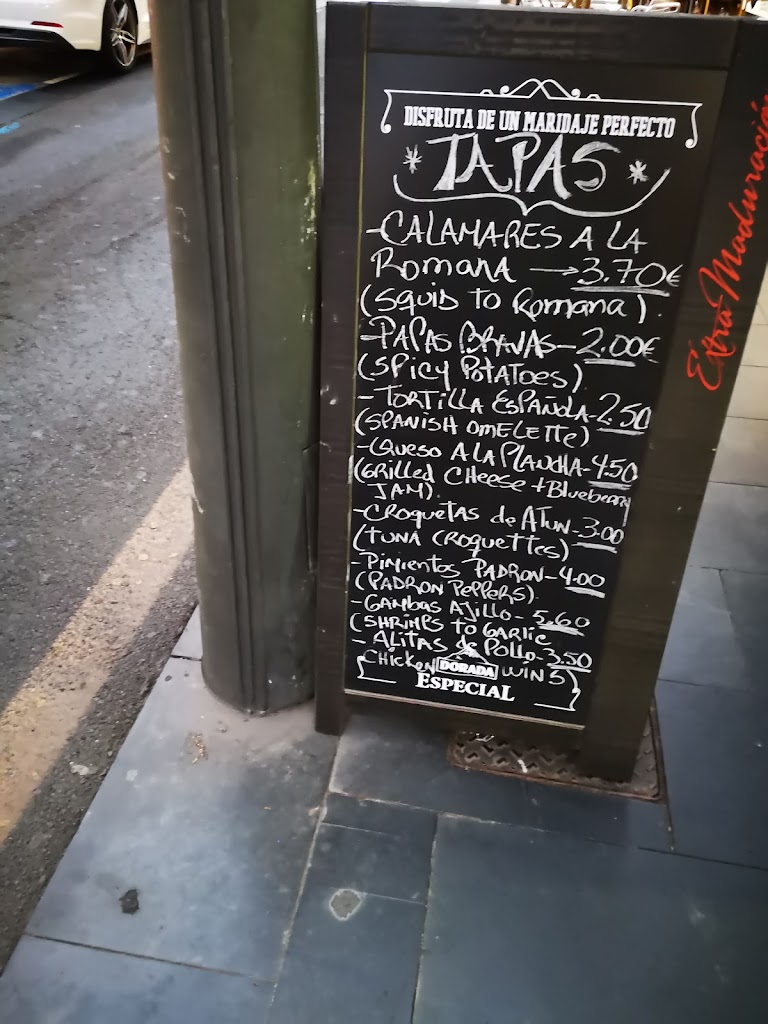 DISFRUTA DE UN MARIDAJE PERFECTO
* TAPAS *
-CALAMARES A LA
ROMANA → 3.70€
(SQUID TO ROMANA).
-PAPAS BRAVAS- 2.00€
(SPICY POTATOES).
-TORTILLA ESPAÑOLA-2.50
(SPANISH OMELETTE)
-QUESO A LA PLANCHA-4.50
(GRILLED CHEESE + Blueberry
JAM).
-CROQUETAS de ATUN-3.00
(TUNA CROQUETTES)
-PIMIENTOS PADRON-4.00
(PADRON PEPPERS).
-GAMBAS AJILLO- 5.60
(SHRIMPS TO GARLIC
- ALITAS de POLLO-3.50
CHICKEN WINS)
DORADA
ESPECIAL
Extra Maduración